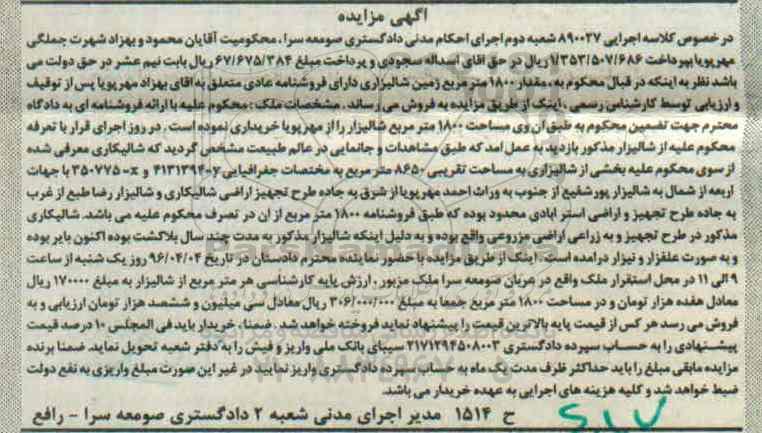 آگهی مزایده
در خصوص کلاسه اجرایی ۸۹۰۰۳۷ شعبه دوم اجرای احکام مدنی دادگستری صومعه سرا ، محکومیت آقایان محمود و بهزاد شهرت جملگی
مهرپویا بپرداخت ۱/۳۵۳/۵۰۷/۶۸۶ ریال در حق آقای اسداله سجودی و پرداخت مبلغ ۶۷/۶۷۵/۳۸۴ ریال بابت نیم عشر در حق دولت می
باشد نظر به اینکه در قبال محکوم به مقدار ۱۸۰۰ متر مربع زمین شالیزاری دارای فروشنامه عادی متعلق به آقای بهزاد مهرپویا پس از توقیف
و ارزیابی توسط کارشناس رسمی ، اینک از طریق مزایده به فروش می رساند . مشخصات ملک : محکوم علیه با ارائه فروشنامه ای به دادگاه
محترم جهت تضمین محکوم به طبق آن وی مساحت ۱۸۰۰ متر مربع شالیزار را از مهرپویا خریداری نموده است . در روز اجرای قرار با تعرفه
محکوم علیه از شالیزار مذکور بازدید به عمل آمد که طبق مشاهدات و جانمایی در عالم طبیعت مشخص گردید که شالیکاری معرفی شده
از سوی محکوم علیه بخشی از شالیزاری به مساحت تقریبی ۸۶۵۰ متر مربع به مختصات جغرافیایی ۴۱۳۱۳۹۴=y و ۳۵۰۷۷۵=x با جهات
اربعه از شمال به شالیزار پورشفیع از جنوب به وراث احمد مهرپویا از شرق به جاده طرح تجهیز اراضی شالیکاری و شالیزار رضا طبع از غرب
به جاده طرح تجهیز و اراضی استر آبادی محدود بوده که طبق فروشنامه ۱۸۰۰ متر مربع از آن در تصرف محکوم علیه می باشد. شالیکاری
مذکور در طرح تجهیز و به زراعی اراضی مزروعی واقع بوده و به دلیل اینکه شالیزار مذکور به مدت چند سال بلاکشت بوده اکنون بایر بوده
و به صورت علفزار و نیزار درآمده است . اینک از طریق مزایده با حضور نماینده محترم دادستان در تاریخ ۹۶/۰۴/۰۴ روز یک شنبه از ساعت
۹ الی ۱۱ در محل استقرار ملک واقع در عربان صومعه سرا ملک مزبور ، ارزش پایه کارشناسی هر متر مربع از شالیزار به مبلغ ۱۷۰۰۰۰ ریال
معادل هفده هزار تومان و در مساحت ۱۸۰۰ متر مربع جمعا به مبلغ ۳۰۶/۰۰۰/۰۰۰ ریال معادل سی میلیون و ششصد هزار تومان ارزیابی و به
فروش می رسد هر کس از قیمت پایه بالاترین قیمت را پیشنهاد نماید فروخته خواهد شد . ضمنا ، خریدار باید فی المجلس ۱۰ درصد قیمت
پیشنهادی را به حساب سپرده دادگستری ۲۱۷۱۲۹۴۵۰۸۰۰۳ سیبای بانک ملی واریز و فیش را به دفتر شعبه تحویل نماید. ضمنا برنده
مزایده مابقی مبلغ را باید حداکثر ظرف مدت یک ماه به حساب سپرده دادگستری واریز نمایید در غیر این صورت مبلغ واریزی به نفع دولت
ضبط خواهد شد و کلیه هزینه های اجرایی به عهده خریدار می باشد.
ح ۱۵۱۴ مدیر اجرای مدنی شعبه ۲ دادگستری صومعه سرا - رافع